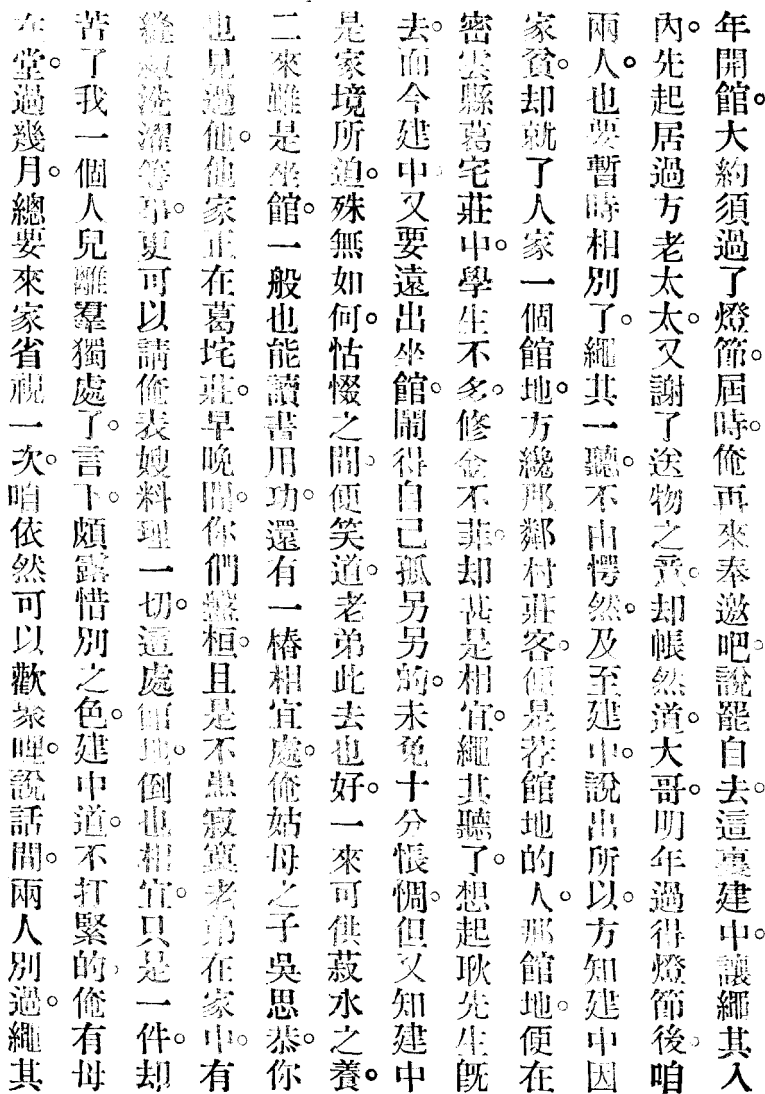 年開館。大約須過了燈節。屆時。俺再來奉邀吧。說罷自去。這裏建中。讓繩其入
內。先起居過方老太太。又謝了送物之意。却悵然道。大哥。明年過得燈節後。咱
兩人。也要暫時相別了。繩其一聽。不由愕然。及至建中。說出所以。方知建中因
家貧。却就了人家一個館地。方纔那鄰村莊客。便是荐館地的人。那館地。便在
密雲縣葛宅莊中。學生不多。修金不菲。却甚是相宜。繩其聽了。想起耿先生既
去。而今建中。又要遠出坐館。鬧得自己孤另另的。未免十分悵惆。但又知建中
是家境所迫。殊無如何。怙惙之間。便笑道。老弟此去也好。一來可供菽水之養。
二來雖是坐館。一般也能讀書用功。還有一樁相宜處。俺姑母之子吳思恭。你
也見過他。他家正在葛坨莊。早晚間。你們盤桓。且是不患寂寞。老弟在家中。有
縫紉洗濯等事。更可以請俺表嫂料理一切。這處館地。倒也相宜。只是一件。却
苦了我一個人兒離羣獨處了。言下。頗露惜別之色。建中道。不打緊的。俺有母
在堂。過幾月。總要來家省視一次。咱依然可以歡聚哩。說話間。兩人別過。繩其